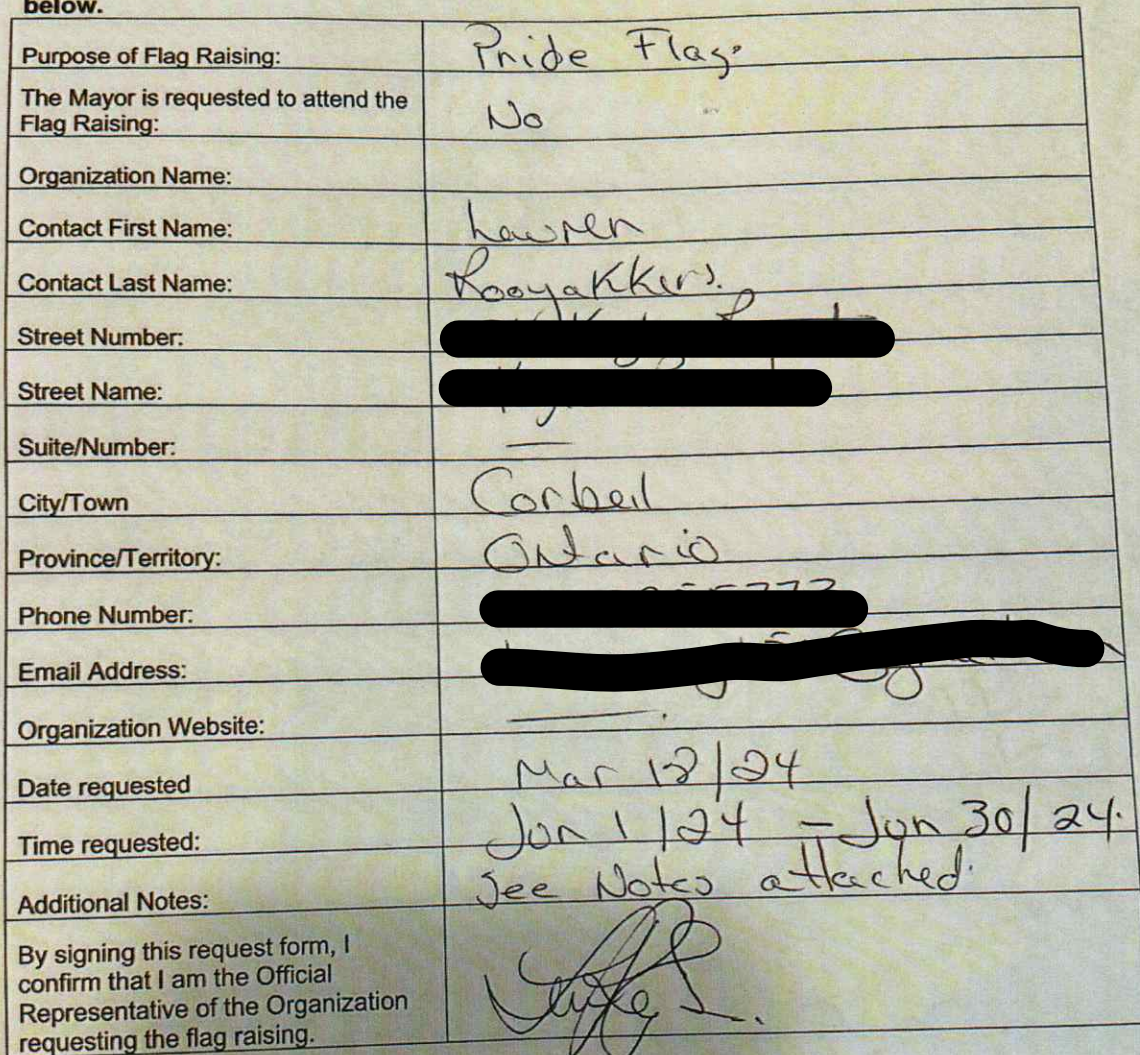 below.
Purpose of Flag Raising: Pride Flag.
The Mayor is requested to attend the
Flag Raising: No
Organization Name:
Contact First Name: Lauren
Contact Last Name: Rooyakkers.
Street Number:
Street Name:
Suite/Number: —
City/Town Corbeil
Province/Territory: Ontario
Phone Number:
Email Address:
Organization Website: —.
Date requested Mar 12/24
Time requested: Jun 1/24 - Jun 30/24.
Additional Notes: See Notes attached.
By signing this request form, I
confirm that I am the Official
Representative of the Organization
requesting the flag raising.